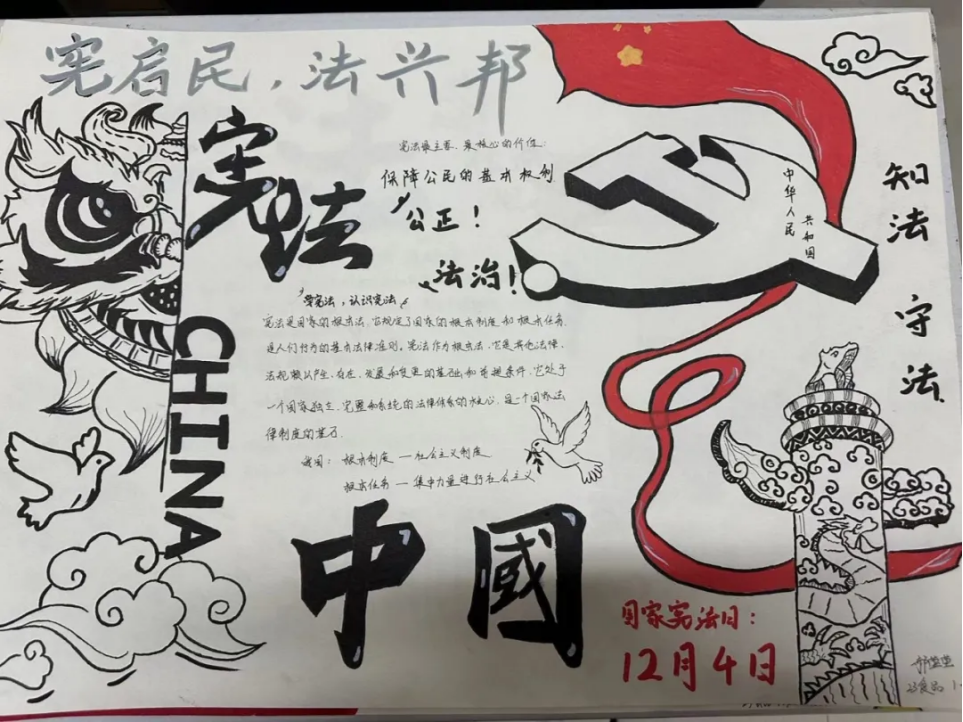 宪启民，法兴邦
宪法
CHINA
宪法最主要、最核心的价值：
保障公民的基本权利
公正！
法治！
中华人民
共和国
知法守法
学宪法，认识宪法
宪法是国家的根本法，它规定了国家的根本制度和根本任务
是人们行为的基本法律准则。宪法作为根本法，它是其他法律、
法规赖以产生、存在、发展和变更的基础和前提条件，它处于
一个国家独立、完整和系统的法律体系的核心，是一个国家法
律制度的基石．
我国：根本制度 — 社会主义制度
根本任务 — 集中力量进行社会主义
中國
国家宪法日：
12月4日